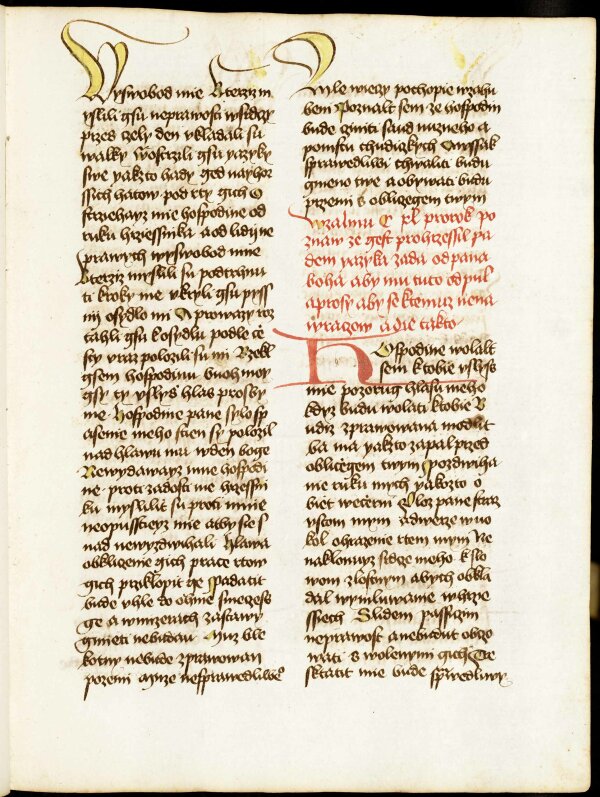 Wyswobod mie Kterziz m
yslili gsu neprawosti wsrdczy
przes czely den vkladali su
walky Wostrzli gsu yazyky
swe yakzto hady ged nayhor
ssich hatow pod rty gich O
strziehayz mie hospodine od
ruka hrziessnika a od lidij ne
prawych wyswobod mne
Kterziz myslili su podtrhnu
ti kroky me vkryli gsu pyss
nij osydlo mi A prowazy roz
tahli gsu k osydlu podle če
sty vraz polozili su mi Rzekl
gsem hospodinu buoh moy
gsy ty vslyš hlas prosby
me Hospodine pane sylo sp
asenie meho stien sy polozil
nad hlawu mu w den boge
Newydawayz mne hospodi
ne proti zadosti me hrzessni
ku myslilit su proti mnie
neopusstieyz mie at by sie s
nad newyzdwihali Hlawa
obkliczenie gich prace rtow
gich prziklopit ge Padatit
bude vhle do ohnie swrzess
ge a w mizerach zastawy
gmieti nebudau Muz ble
kotny nebude zprawowan
na zemi Muze nesprawedliwe°
zule wiezy pochopie w zahu
beni Poznalt sem ze hospodin
bude cziniti saud nuzneho a
pomstu chudiczkych A wssak
sprawedliwi chwaliti budu
gmeno twe a obywati budu
przimi s obliczegem twym
W zalmu C xl prorok po
znaw ze gest prohrzessil pa
dem yazyka zada od pana
boha aby mu tuto odpust
a prosy aby se k temuz nena
wraczow a die takto
Hospodine wolalt
sem k tobie vslyš
mie pozorug hlasu meho
kdyz budu wolati k tobie B
udiz zprawowana modlit
ba ma yakzto zapal przed
obliczegem twym Pozdwiha
nie ruku mych yakozto o
biet weczerni Poloz pane straz
vstom mym a dwerze w uo
kol ohrazenie rtem mym Ne
naklonuyz srdcze meho k slo
wom zlostnym abych obkla
dal wymluwanie w hrzie
ssiech S lidem passiczim
neprawost a nebudut obco
wati s wolenymi gich Tre
sktatit mie bude sprawedliwy